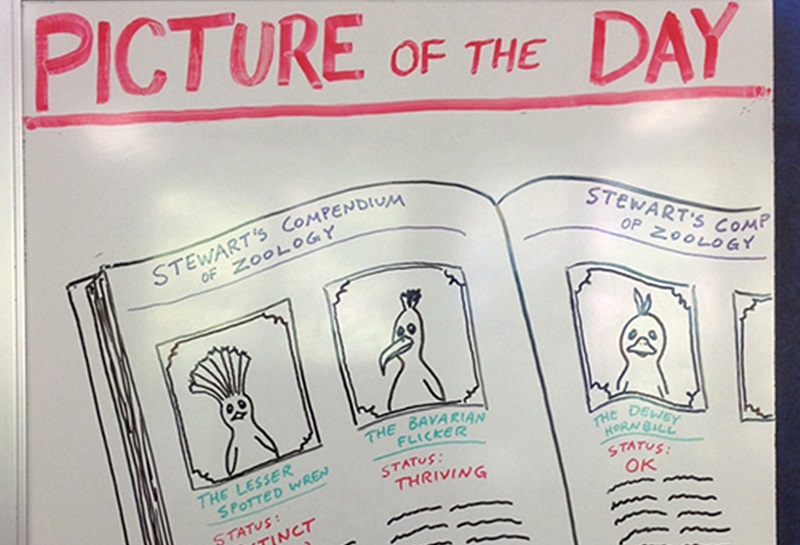 PICTURE OF THE DAY
STEWART'S COMPENDIUM
OF ZOOLOGY
THE LESSER
SPOTTED WREN
STATUS:
THE BAVARIAN
FLICKER
STATUS:
THRIVING
STEWART'S COMP
OF ZOOLOGY
THE DEWEY
HORNBILL
STATUS:
OK